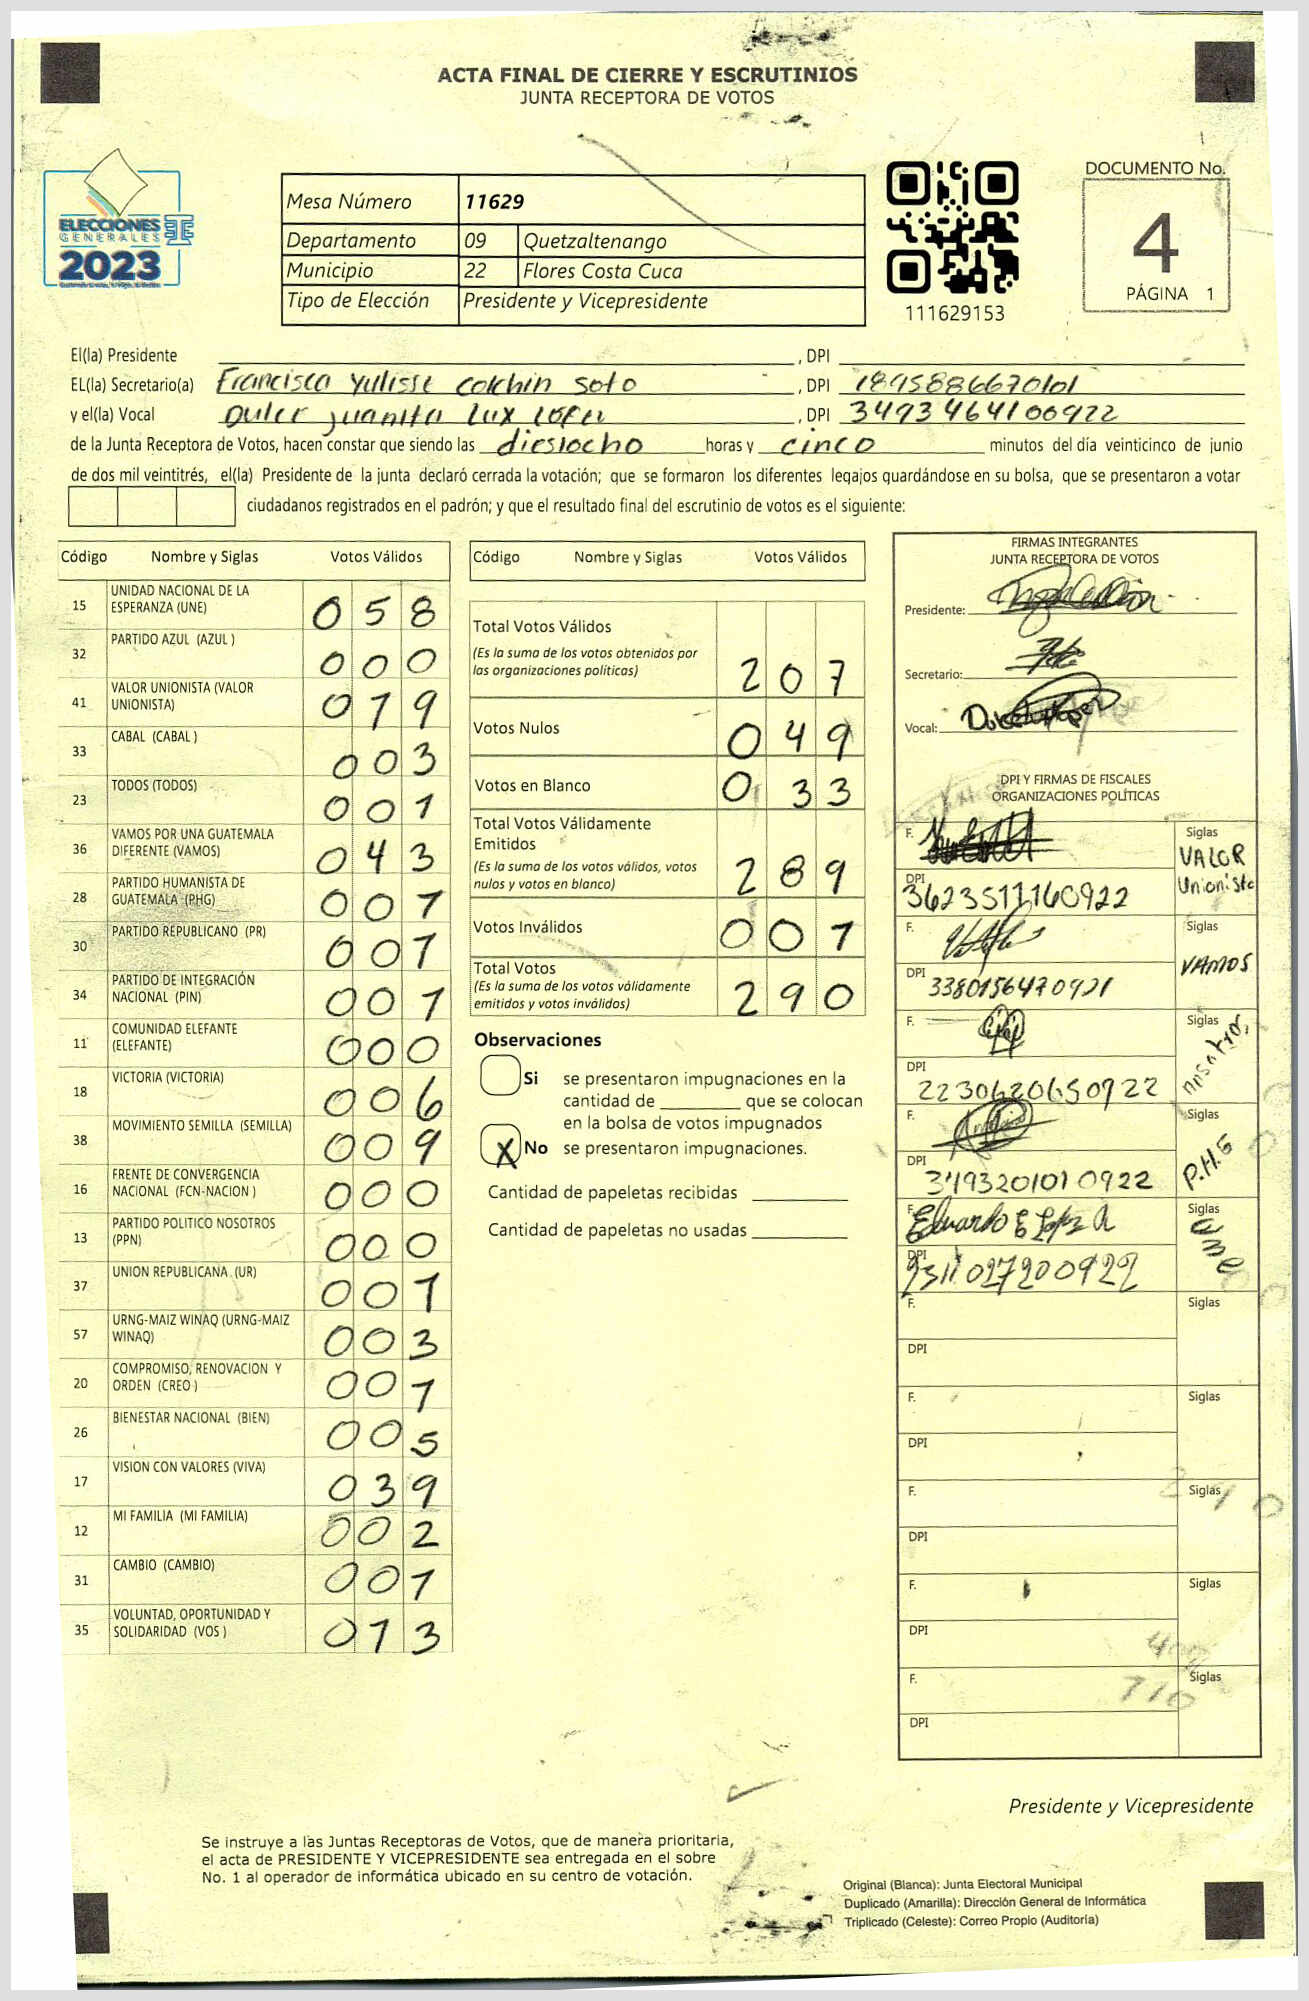 ACTA FINAL DE CIERRE Y ESCRUTINIOS
JUNTA RECEPTORA DE VOTOS
ELECCIONES
GENERALES
2023
Mesa Número 11629
Departamento 09 Quetzaltenango
Municipio 22 Flores Costa Cuca
Tipo de Elección Presidente y Vicepresidente
111629153
DOCUMENTO No.
4
PÁGINA 1
El(la) Presidente , DPI
EL(la) Secretario(a) Francisca Yulisse Colchin Soto , DPI 1895886670101
y el(la) Vocal Dulce Juanita Lux López , DPI 3493464100922
de la Junta Receptora de Votos, hacen constar que siendo las diesiocho horas y cinco minutos del día veinticinco de junio
de dos mil veintitrés, el(la) Presidente de la junta declaró cerrada la votación; que se formaron los diferentes legajos guardándose en su bolsa, que se presentaron a votar
ciudadanos registrados en el padrón; y que el resultado final del escrutinio de votos es el siguiente:
Código Nombre y Siglas Votos Válidos
15 UNIDAD NACIONAL DE LA ESPERANZA (UNE) 058
32 PARTIDO AZUL (AZUL ) 000
41 VALOR UNIONISTA (VALOR UNIONISTA) 019
33 CABAL (CABAL ) 003
23 TODOS (TODOS) 001
36 VAMOS POR UNA GUATEMALA DIFERENTE (VAMOS) 043
28 PARTIDO HUMANISTA DE GUATEMALA (PHG) 001
30 PARTIDO REPUBLICANO (PR) 001
34 PARTIDO DE INTEGRACIÓN NACIONAL (PIN) 001
11 COMUNIDAD ELEFANTE (ELEFANTE) 000
18 VICTORIA (VICTORIA) 006
38 MOVIMIENTO SEMILLA (SEMILLA) 009
16 FRENTE DE CONVERGENCIA NACIONAL (FCN-NACION ) 000
13 PARTIDO POLITICO NOSOTROS (PPN) 000
37 UNION REPUBLICANA (UR) 001
57 URNG-MAIZ WINAQ (URNG-MAIZ WINAQ) 003
20 COMPROMISO, RENOVACION Y ORDEN (CREO ) 001
26 BIENESTAR NACIONAL (BIEN) 005
17 VISION CON VALORES (VIVA) 039
12 MI FAMILIA (MI FAMILIA) 002
31 CAMBIO (CAMBIO) 001
35 VOLUNTAD, OPORTUNIDAD Y SOLIDARIDAD (VOS ) 013
Código Nombre y Siglas Votos Válidos
Total Votos Válidos
(Es la suma de los votos obtenidos por
las organizaciones políticas) 207
Votos Nulos 049
Votos en Blanco 0 33
Total Votos Válidamente
Emitidos
(Es la suma de los votos válidos, votos
nulos y votos en blanco) 289
Votos Inválidos 001
Total Votos
(Es la suma de los votos válidamente
emitidos y votos inválidos) 290
Observaciones
Si se presentaron impugnaciones en la
cantidad de ________ que se colocan
en la bolsa de votos impugnados
X No se presentaron impugnaciones.
Cantidad de papeletas recibidas
Cantidad de papeletas no usadas
FIRMAS INTEGRANTES
JUNTA RECEPTORA DE VOTOS
Presidente:
Secretario:
Vocal:
DPI Y FIRMAS DE FISCALES
ORGANIZACIONES POLÍTICAS
F. Siglas VALOR Unionista
DPI 3623511160922
F. Siglas VAMOS
DPI 3380156470921
F. Siglas nosotros
DPI 2230620650922
F. Siglas P.H.G
DPI 3493201010922
F. Eduardo E López A Siglas une
DPI
F. Siglas
DPI
F. Siglas
DPI
F. Siglas
DPI
F. Siglas
DPI
F. Siglas
DPI
Presidente y Vicepresidente
Se instruye a las Juntas Receptoras de Votos, que de manera prioritaria,
el acta de PRESIDENTE Y VICEPRESIDENTE sea entregada en el sobre
No. 1 al operador de informática ubicado en su centro de votación.
Original (Blanca): Junta Electoral Municipal
Duplicado (Amarilla): Dirección General de Informática
Triplicado (Celeste): Correo Propio (Auditoría)